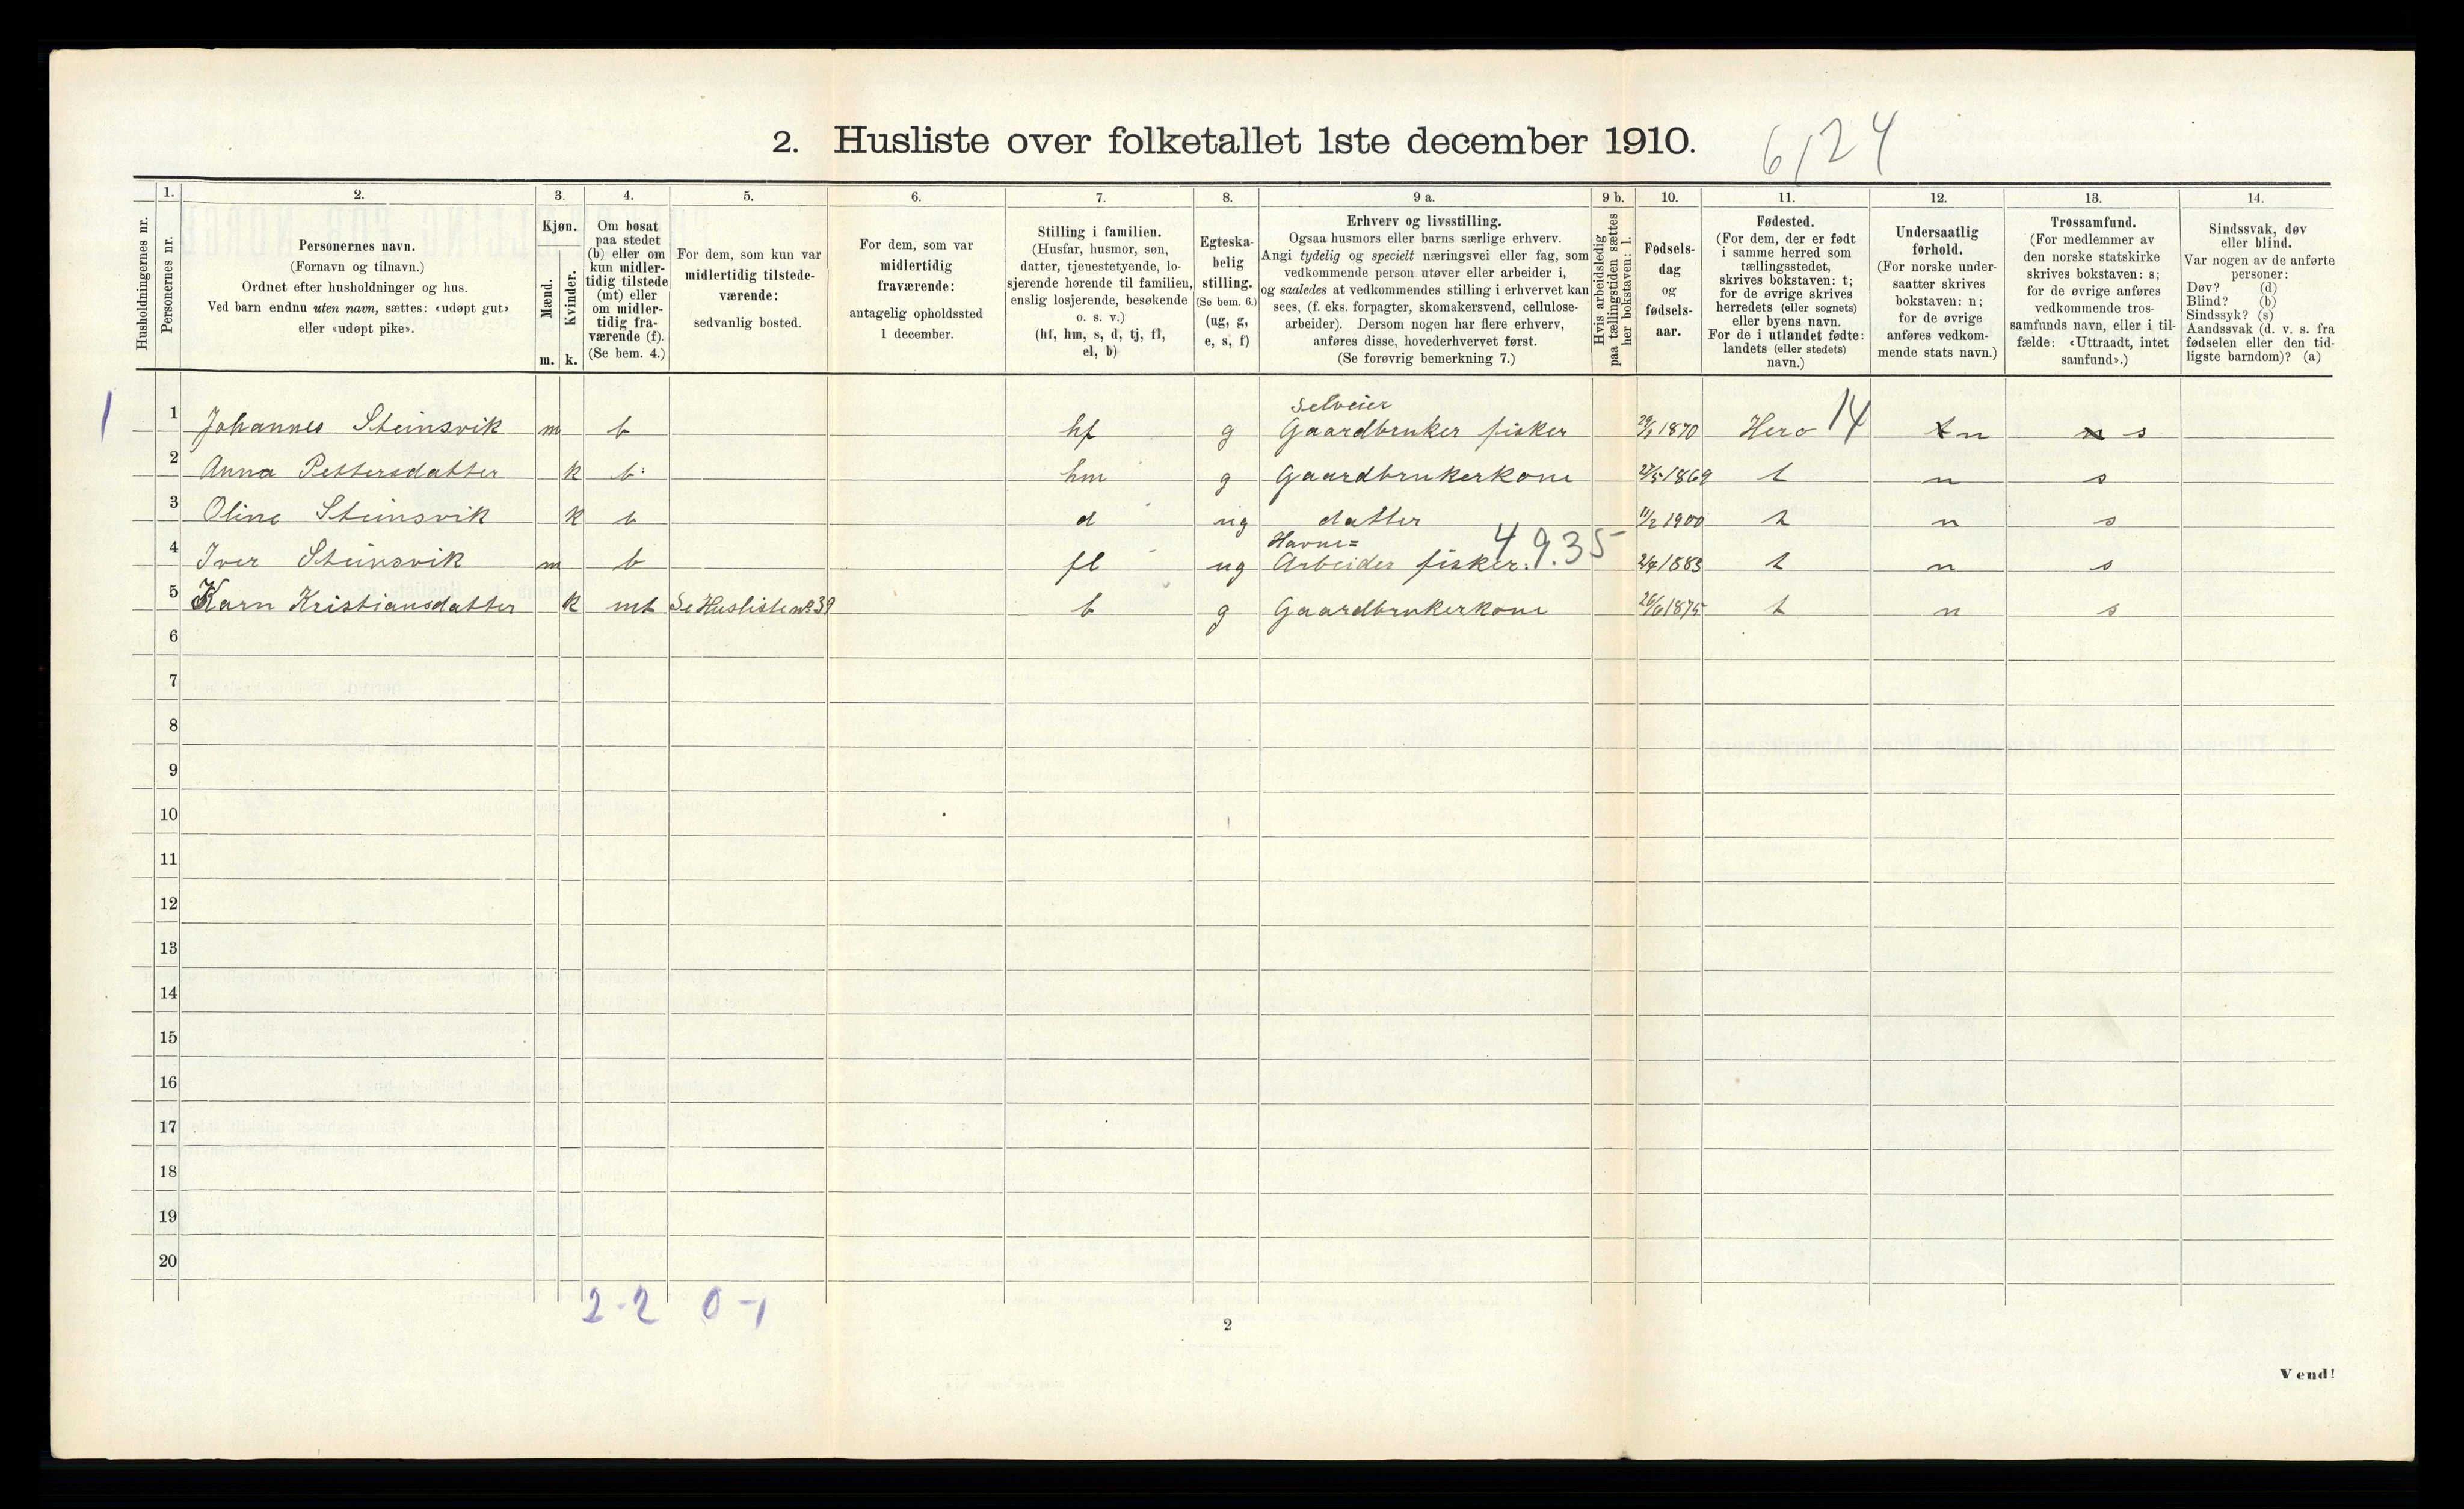 2. Husliste over folketallet 1ste december 1910. 6/24
1. 2. 3. 4. 5. 6. 7. 8. 9 a. 9 b. 10. 11. 12. 13. 14.
Husholdningernes nr.
Personernes nr.
Personernes navn.
(Fornavn og tilnavn.)
Ordnet efter husholdninger og hus.
Ved barn endnu uten navn, sættes: «udøpt gut»
eller «udøpt pike».
Kjøn.
Mænd.
Kvinder.
m. k.
Om bosat
paa stedet
(b) eller om
kun midler-
tidig tilstede
(mt) eller
om midler-
tidig fra-
værende (f).
(Se bem. 4.)
For dem, som kun var
midlertidig tilstede-
værende:
sedvanlig bosted.
For dem, som var
midlertidig
fraværende:
antagelig opholdssted
1 december.
Stilling i familien.
(Husfar, husmor, søn,
datter, tjenestetyende, lo-
sjerende hørende til familien,
enslig losjerende, besøkende
o. s. v.)
(hf, hm, s, d, tj, fl,
el, b)
Egteska-
belig
stilling.
(Se bem. 6.)
(ug, g,
e, s, f)
Erhverv og livsstilling.
Ogsaa husmors eller barns særlige erhverv.
Angi tydelig og specielt næringsvei eller fag, som
vedkommende person utøver eller arbeider i,
og saaledes at vedkommendes stilling i erhvervet kan
sees, (f. eks. forpagter, skomakersvend, cellulose-
arbeider). Dersom nogen har flere erhverv,
anføres disse, hovederhvervet først.
(Se forøvrig bemerkning 7.)
Hvis arbeidsledig
paa tællingstiden sættes
her bokstaven: l.
Fødsels-
dag
og
fødsels-
aar.
Fødested.
(For dem, der er født
i samme herred som
tællingsstedet,
skrives bokstaven: t;
for de øvrige skrives
herredets (eller sognets)
eller byens navn.
For de i utlandet fødte:
landets (eller stedets)
navn.)
Undersaatlig
forhold.
(For norske under-
saatter skrives
bokstaven: n;
for de øvrige
anføres vedkom-
mende stats navn.)
Trossamfund.
(For medlemmer av
den norske statskirke
skrives bokstaven: s;
for de øvrige anføres
vedkommende tros-
samfunds navn, eller i til-
fælde: «Uttraadt, intet
samfund».)
Sindssvak, døv
eller blind.
Var nogen av de anførte
personer:
Døv? (d)
Blind? (b)
Sindssyk? (s)
Aandssvak (d. v. s. fra
fødselen eller den tid-
ligste barndom)? (a)
Selveier
1 1 Johannes Steinsvik m b hf g Gaardbruker fisker 1870 Herø 14 t n n s
2 Anna Pettersdatter k b hm g Gaardbrukerkone 27/5 1869 t n s
3 Oline Steinsvik k b d ug datter 11/2 1900 t n s
Havne= 4 9.35
4 Iver Steinsvik m b fl ug Arbeider fisker. 2/4 1883 t n s
5 Karn Kristiansdatter k mt Se Husliste nr 39 b g Gaardbrukerkone 26/6 1875 t n s
6
7
8
9
10
11
12
13
14
15
16
17
18
19
20
2-2 0-1
2
Vend!